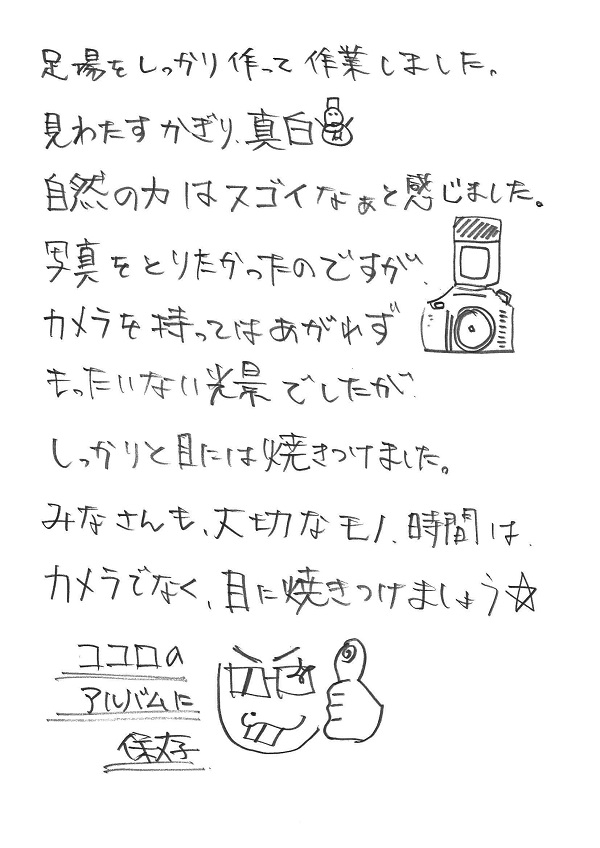 足場をしっかり作って作業しました。
見わたすかぎり、真白
自然の力はスゴイなぁと感じました。
写真をとりたかったのですが、
カメラを持ってはあがれず
もったいない光景でしたが
しっかりと目には焼きつけました。
みなさんも、大切なモノ、時間は、
カメラでなく、目に焼きつけましょう☆
ココロの
アルバムに
保存